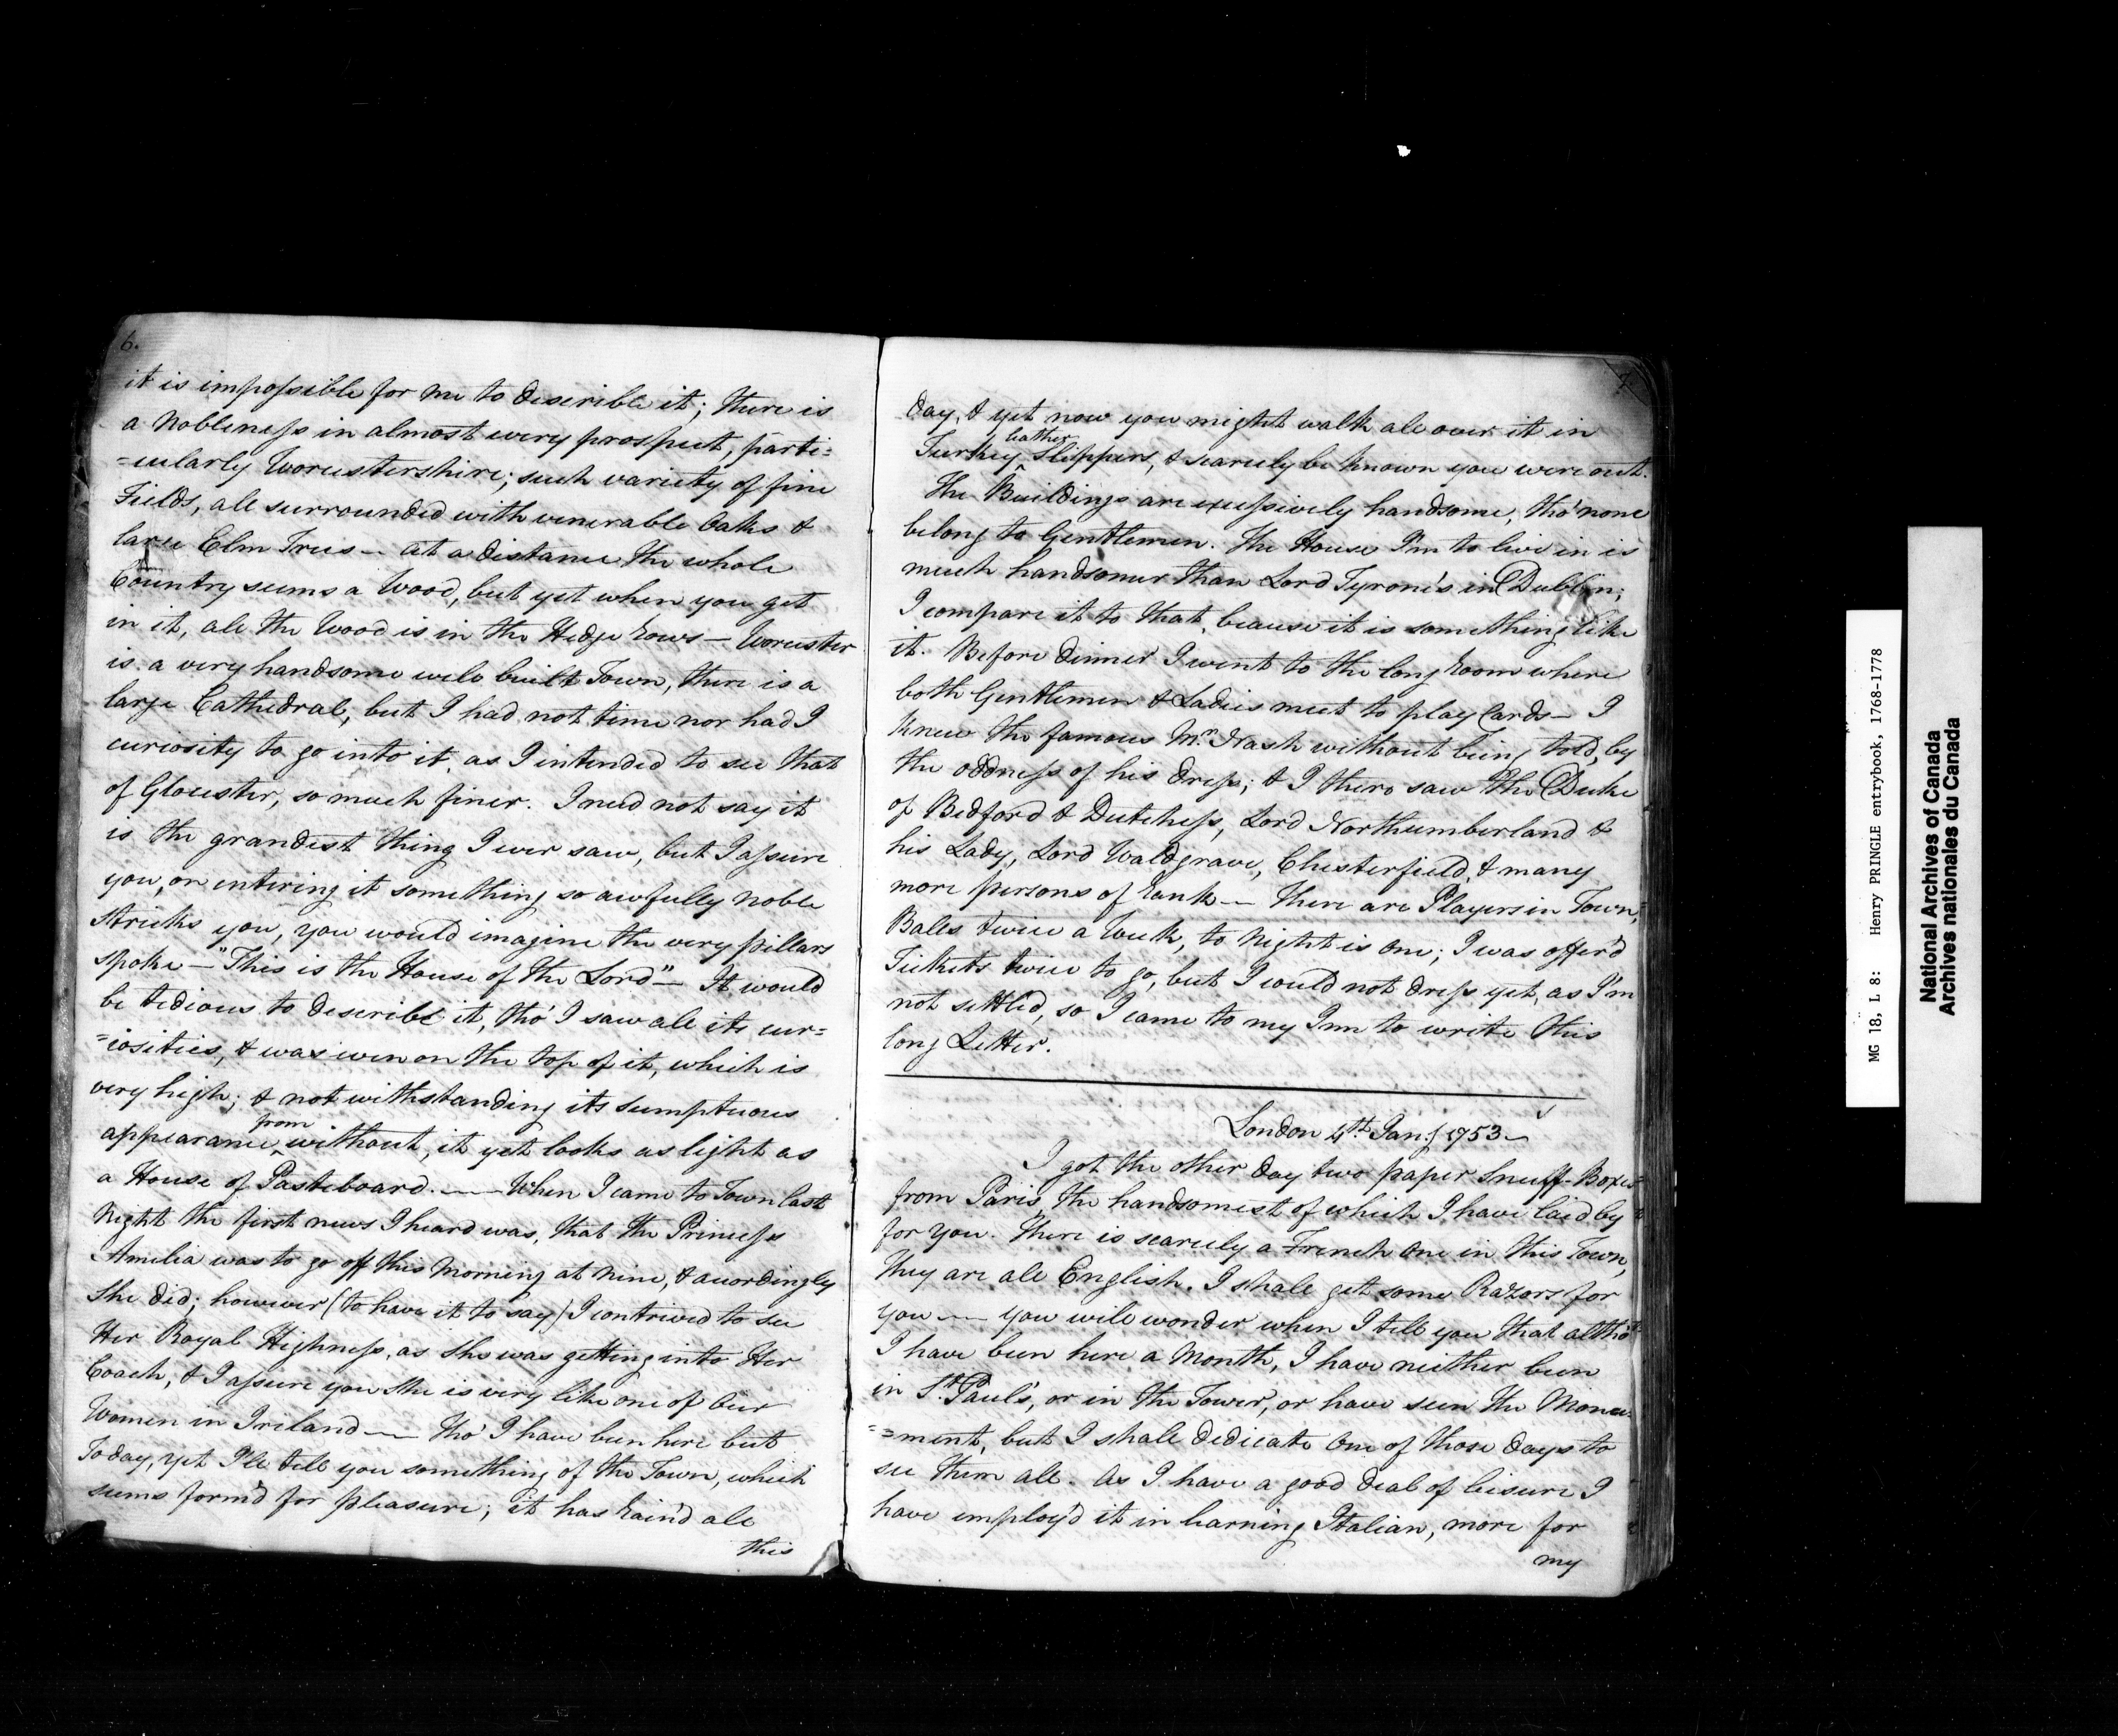 6.
it is impossible for me to describe it; there is
a Nobleness in almost every prospect, parti=
=cularly Worcestershire; such variety of fine
Fields, all surrounded with venerable Oaks &
large Elm Trees — at a distance the whole
Country seems a Wood, but yet when you get
in it, all the Wood is in the Hedge Rows — Worcester
is a very handsome well built Town, there is a
large Cathedral, but I had not time nor had I
curiosity to go into it, as I intended to see that
of Glocester, so much finer. I need not say it
is the grandest thing I ever saw, but I assure
you, on entering it something so awfully noble
stricks you, you would imagine the very pillars
spoke — "This is the House of the Lord" — It would
be tedious to describe it, tho' I saw all its cur=
=iosities, & was even on the top of it, which is
very high; & notwithstanding its sumptuous
appearance from without, it yet looks as light as
a House of Pasteboard. —— When I came to Town last
Night the first news I heard was, that the Princess
Amelia was to go off this Morning at nine, & accordingly
she did; however (to have it to say) I contrived to see
Her Royal Highness, as she was getting into Her
Coach, & I assure you she is very like one of our
Women in Ireland —— Tho' I have been here but
To day, yet I'le tell you something of the Town, which
seems form'd for pleasure; it has Rain'd all
this
7.
day, & yet now you might walk all over it in
Turkey leather Slippers, & scarcely be known you were out.
The Buildings are excessively handsome, tho' none
belong to Gentlemen. The House I'm to live in is
much handsomer than Lord Tyrone's in Dublin;
I compare it to that, because it is something like
it. Before dinner I went to the long Room where
both Gentlemen & Ladies meet to play Cards — I
knew the famous Mr. Nash without being told, by
the oddness of his dress; & I there saw the Duke
of Bedford & Dutchess, Lord Northumberland &
his Lady, Lord Waldgrave, Chesterfield, & many
more persons of Rank — There are Players in Town,
Balls twice a Week, to Night is one; I was offer'd
Tickets twice to go, but I would not dress yet, as I'm
not settled, so I came to my Inn to write this
long Letter.
London 4th. Jany 1753 —
I got the other day two paper Snuff-Boxes
from Paris, the handsomest of which I have laid by
for you. There is scarcely a French One in this Town,
they are all English. I shall get some Razors for
you —— you will wonder when I tell you that altho'
I have been here a Month, I have neither been
in St. Paul's, or in the Tower, or have seen the Monu=
=ment, but I shall dedicate One of those days to
see them all. As I have a good deal of leisure I
have employ'd it in learning Italian, more for
my
MG 18, L 8: Henry PRINGLE entrybook, 1768-1778
National Archives of Canada
Archives nationales du Canada